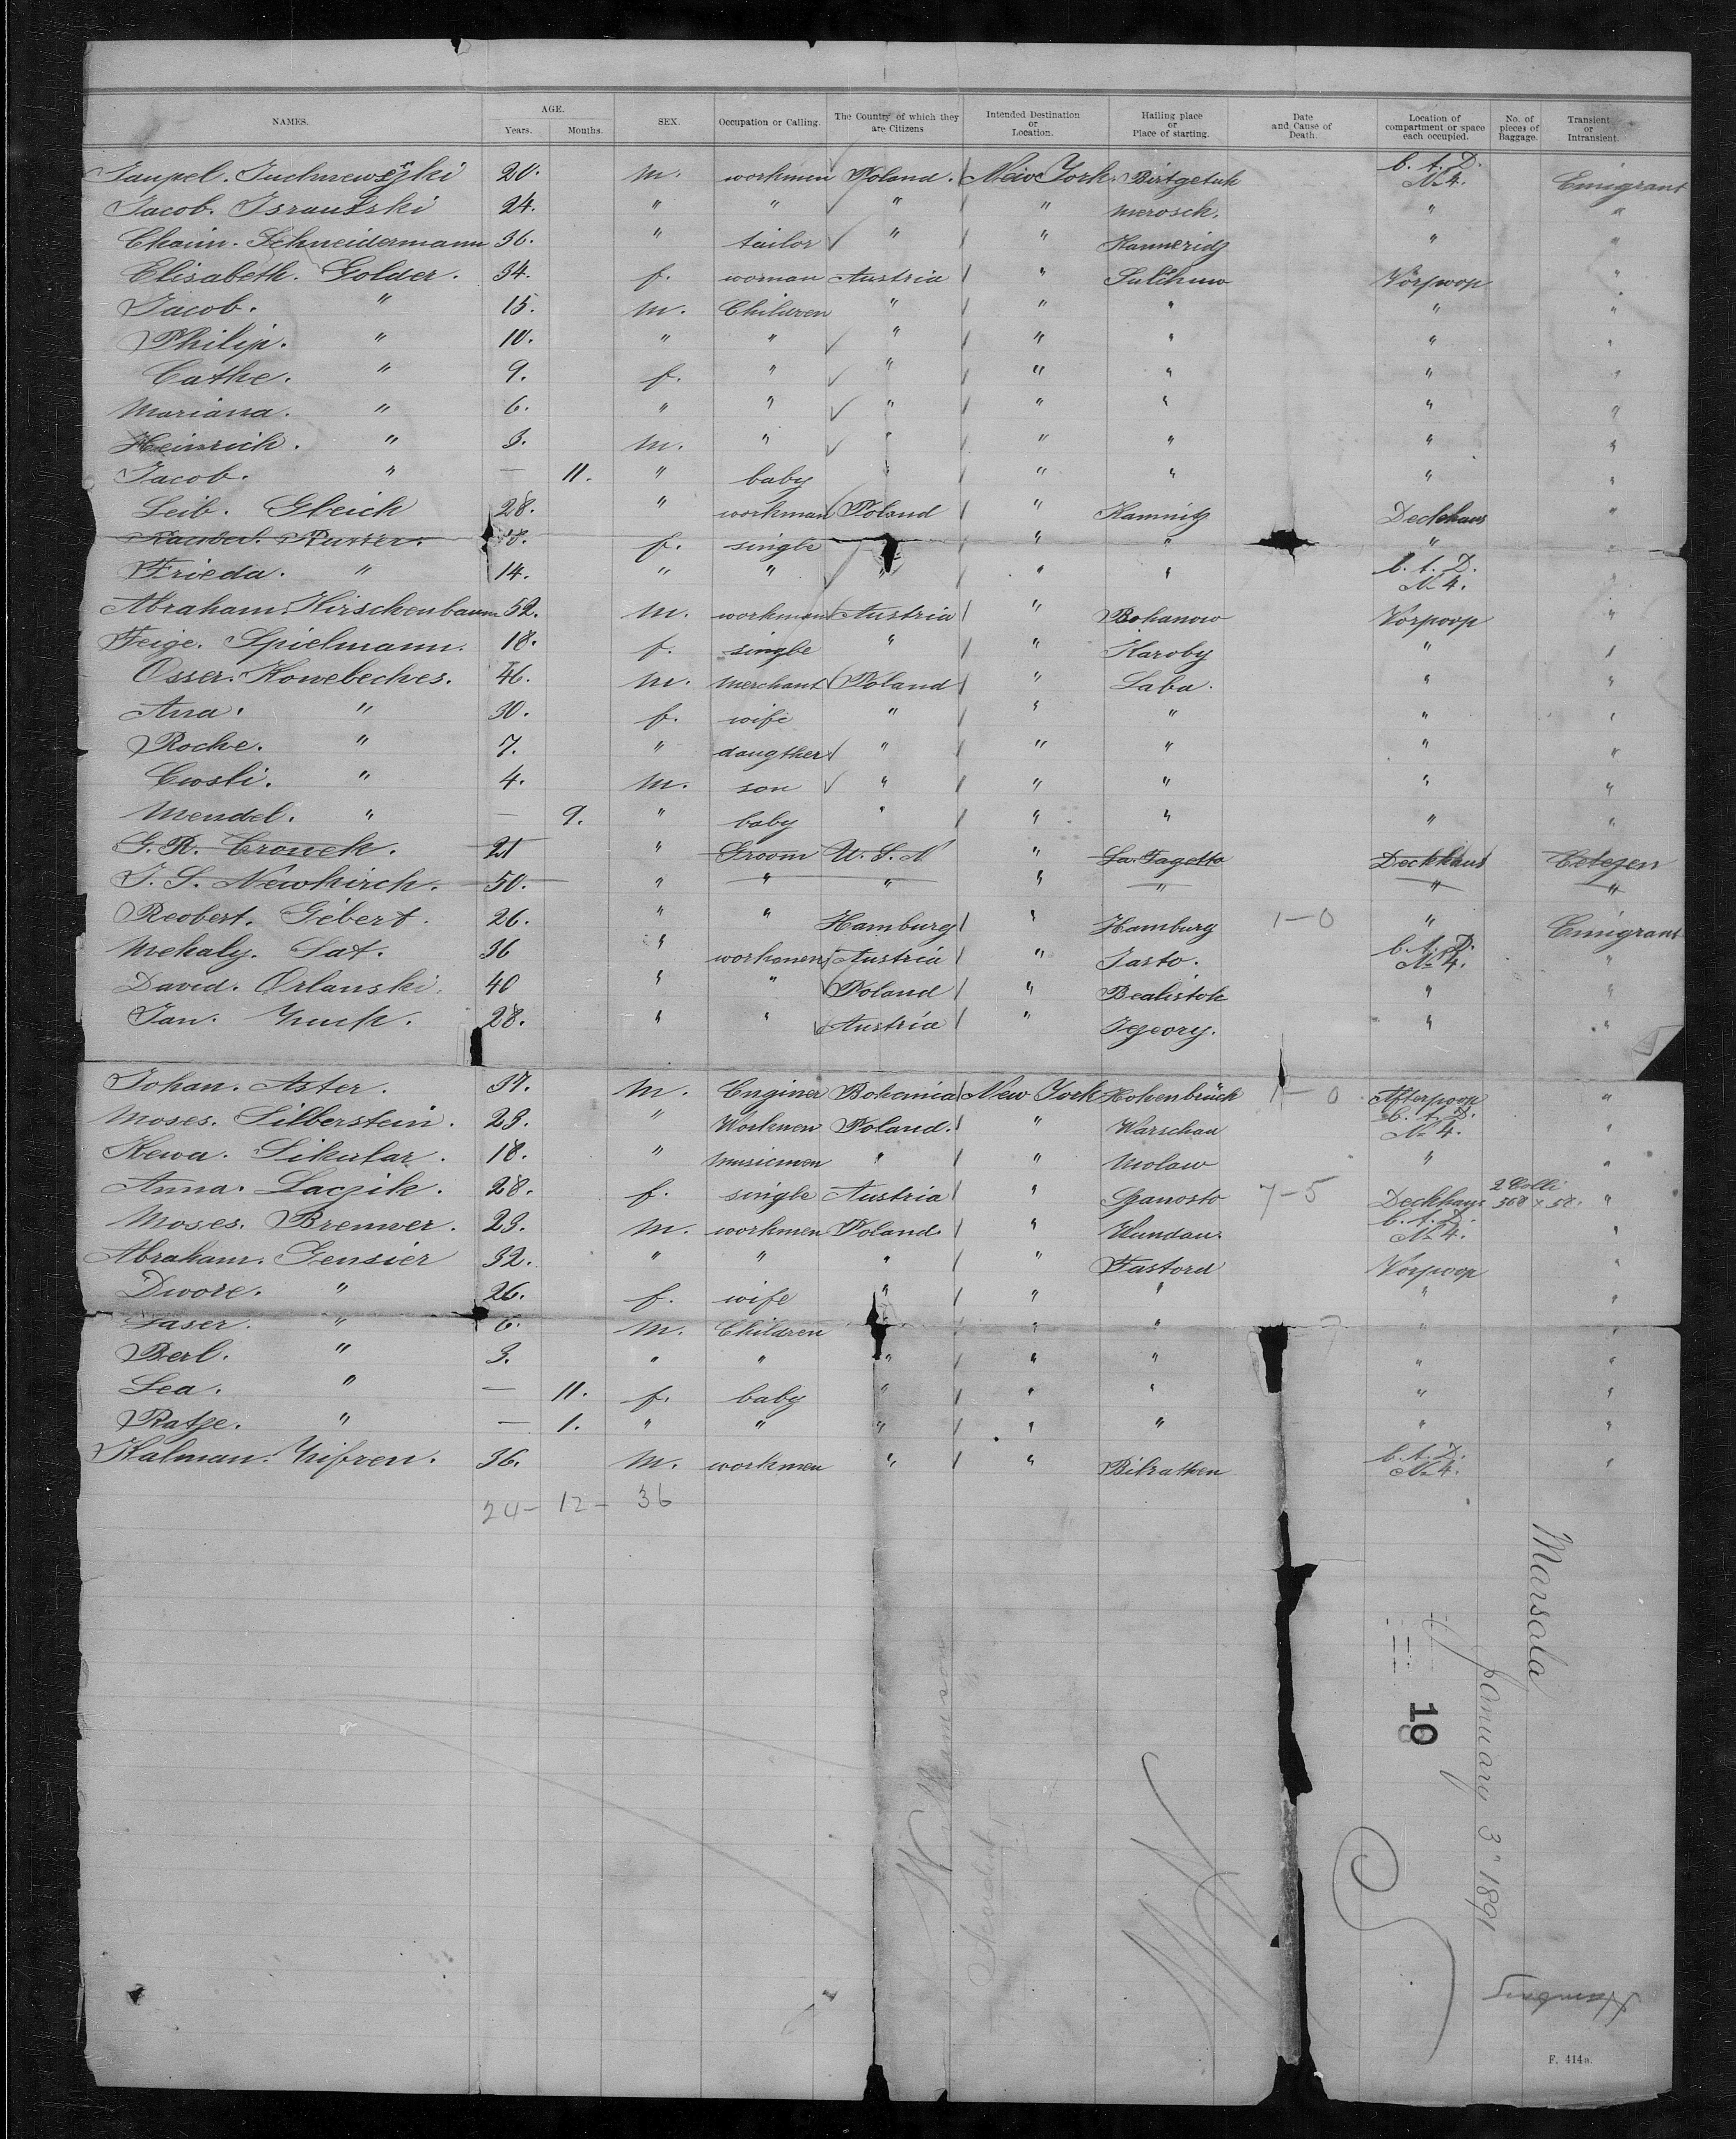 NAMES. AGE. Years. Months. SEX. Occupation or Calling. The Country of which they are Citizens Intended Destination or Location. Hailing place or Place of starting. Date and Cause of Death. Location of compartment or space each occupied. No. of pieces of Baggage. Transient or Intransient.
20. m. workmen Poland. New York. Birtgetuk C. A. D. No 4. Emigrant
Jacob. 24. " " " " Merosch. " "
Chaim. Schneidermann 36. " tailor " " " "
Elisabeth. Golder. 34. f. woman Austria " Vörpoop "
Jacob. " 15. m. Children " " " " "
Philip. " 10. " " " " " " "
Cathe. " 9. f. " " " " " "
Mariana. " 6. " " " " " " "
Heinrich. " 3. m. " " " " " "
Jacob. " — 11. " baby " " " " "
Leib. Gleich 28. " workman Poland " Kamnitz Deckhaus "
f. single " " " "
Frieda. " 14. " " " " " C. A. D. No 4. "
Abraham. Hirschenbaum 52. m. workman Austria " Bohanow Vorpoop "
Feige. Spielmann. 18. f. single " " Karoby " "
Osser. Konebeches. 46. m. Merchant Poland " Laba. " "
Ana. " 30. f. wife " " " " "
Roche. " 7. " daugther " " " " "
Cwsli. " 4. m. son " " " " "
Mendel. " — 9. " baby " " " " "
G. R. Cronek. 21 " Groom U. S. A " La Fagetto Deckhaus Cetezen
J. S. Newkirch. 50. " " " " " " "
Reobert. Gebert. 26. " " Hamburg " Hamburg 1-0 " Emigrant
Mehaly. Sat. 36 " workmen Austria " Jasto. C. A. D. No 4. "
David. Orlanski. 40 " " Poland " Bealistok " "
Jan. 28. " " Austria " " "
Johan. Aster. 37. m. Enginer Bohamia New York Hohenbrück 1-0 Afterpoop "
Moses. Silberstein. 23. " Workmen Poland. " Warschau C. A. D. No 4. "
Hewa. Sikular. 18. " Musicmen " " Molaw " "
Anna. Laczik. 28. f. single Austria " Spanosto 7-5 Deckhaus 2 Colli 568 x 58. "
Moses. Bremwer. 23. m. workmen Poland " C. A. D. No 4. "
Abraham. Gensier 32. " " " " Fastord Vorpoop "
Dwore. " 26. f. wife " " " " "
Laser. " 6. m. Children " " " "
Berl. " 3. " " " " " " "
Lea. " — 11. f. baby " " " " "
Ratze. " — 1. " " " " " " "
Kalman. 36. m. workmen " " Bilrathen C. A. D. No 4. "
24 - 12 - 36
Marsala
January 3" 1891
10
Hamburg
F. 414a.